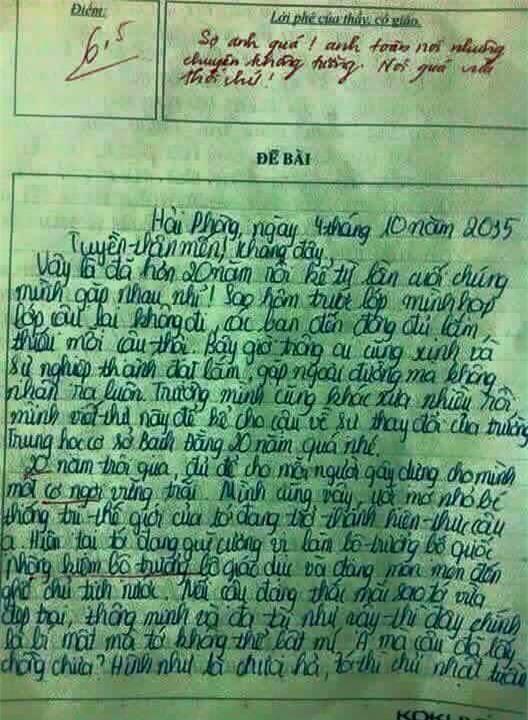 Điểm:
Lời phê của thầy, cô giáo.
6,5
Sợ anh quá! anh toàn nói những
chuyện không tưởng. Nói quá vừa
thôi chứ!
ĐỀ BÀI
Hải Phòng, ngày 4 tháng 10 năm 2035
Tuyền thân mến, Khang đây
Vậy là đã hơn 20 năm rồi kể từ lần cuối chúng
mình gặp nhau nhỉ! Sao hôm trước lớp mình họp
lớp cậu lại không đi, các bạn đến đông đủ lắm,
thiếu mỗi cậu thôi. Bây giờ trông ai cũng xinh và
sự nghiệp thành đạt lắm, gặp ngoài đường mà không
nhận ra luôn. Trường mình cũng khác xưa nhiều rồi
mình viết thư này để kể cho cậu về sự thay đổi của trường
Trung học cơ sở Bạch Đằng 20 năm qua nhé.
20 năm trôi qua đủ để cho mỗi người gây dựng cho mình
một cơ ngơi vững trãi. Mình cũng vậy, ước mơ nhỏ bé
thống trị thế giới của tớ đang trở thành hiện thực cậu
ạ. Hiện tại tớ đang quị cường vì làm bộ trưởng bộ quốc
phòng kiêm bộ trưởng bộ giáo dục và đang mon men đến
ghế chủ tịch nước. Nếu cậu đang thắc mắc sao tớ vừa
đẹp trai, thông minh và đa tài như vậy thì đây chính
là bí mật mà tớ không thể bật mí. À mà cậu đã lấy
chồng chưa? Hình như là chưa hả, tớ thì chủ nhật tuần